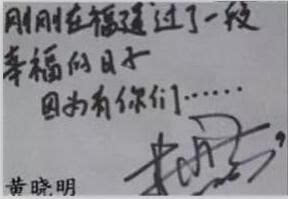 刚刚在福道过了一段
幸福的日子
因为有你们……
黄晓明